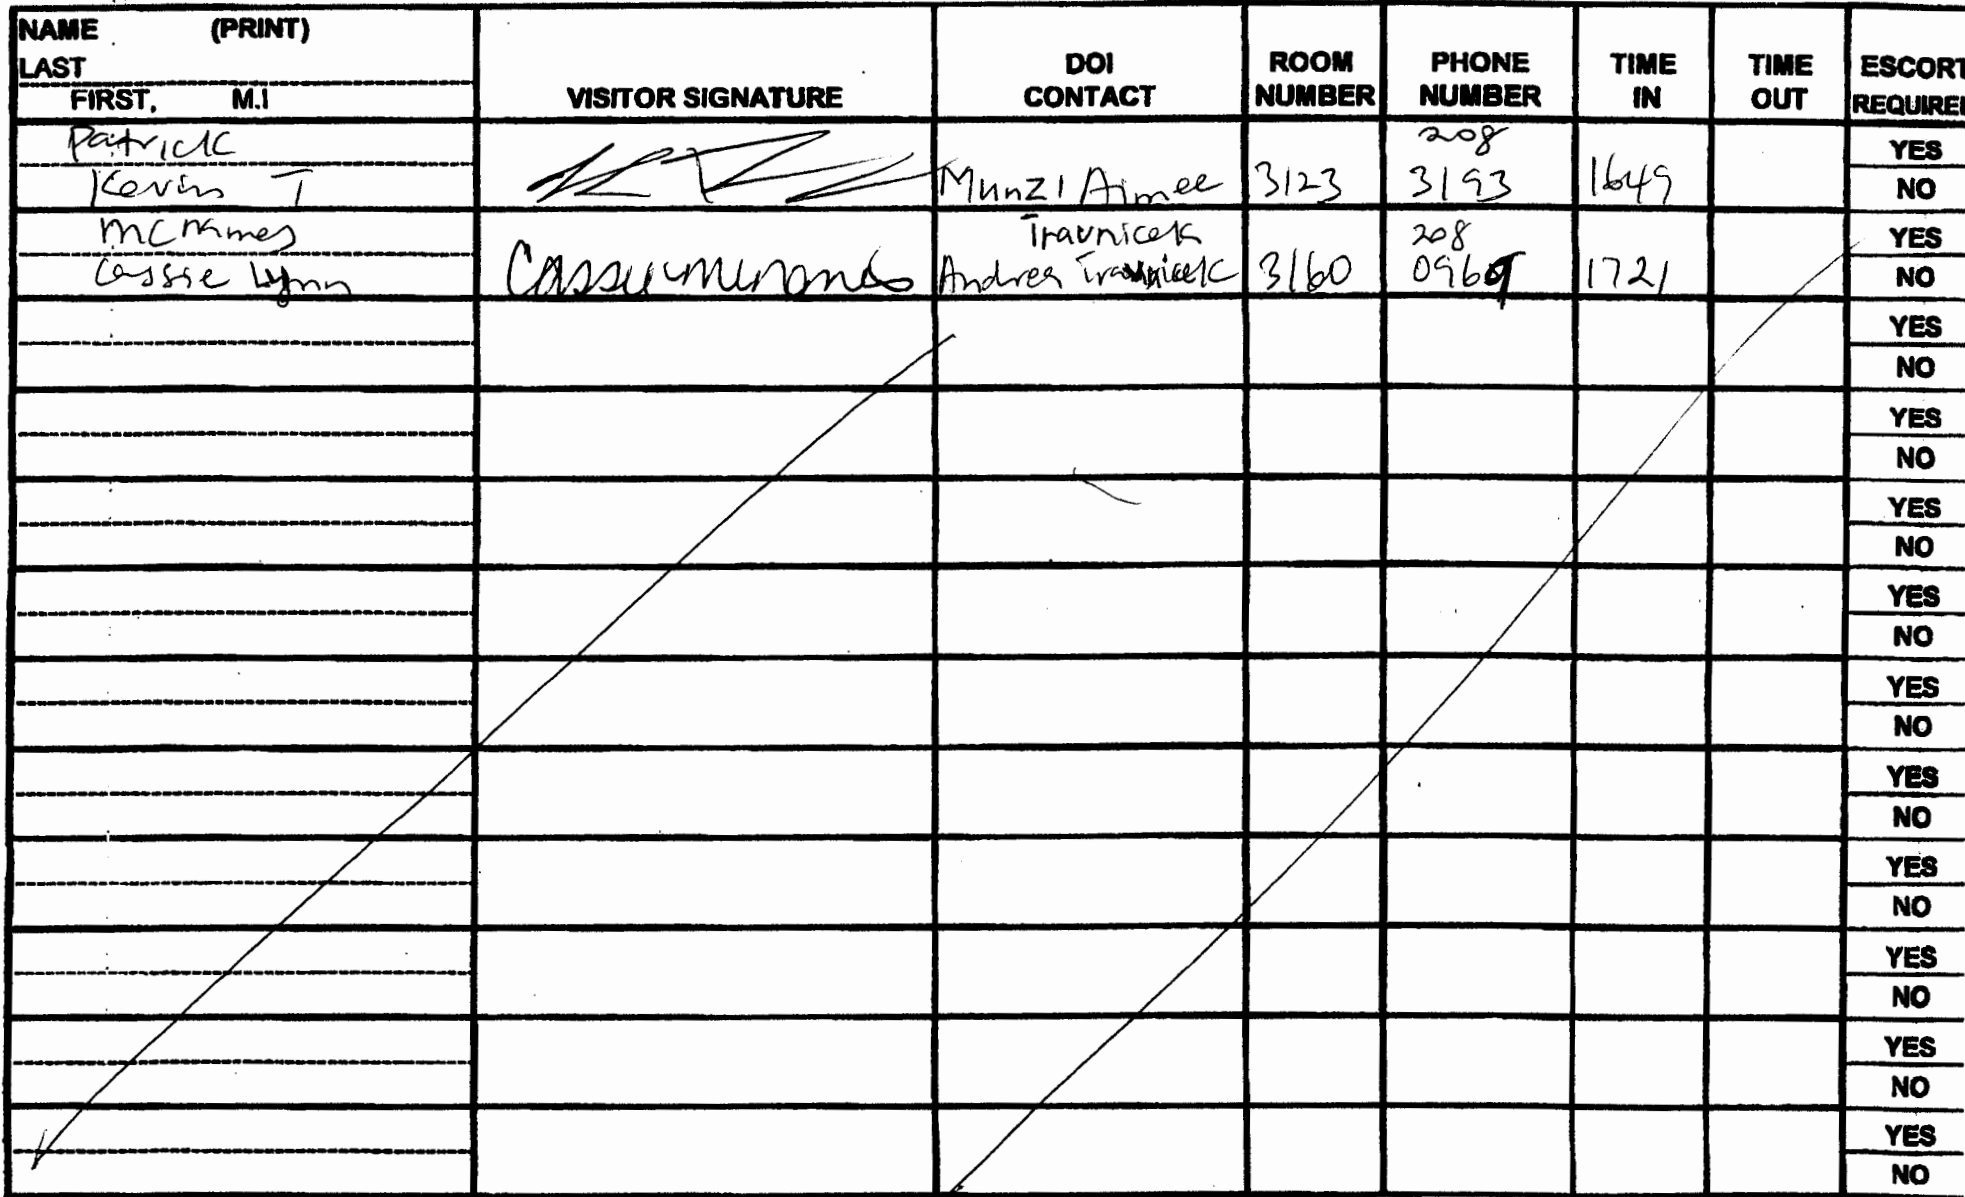 NAME (PRINT)
LAST
FIRST, M.I
VISITOR SIGNATURE
DOI
CONTACT
ROOM
NUMBER
PHONE
NUMBER
TIME
IN
TIME
OUT
ESCORT
REQUIRE
Patrick
Kevin T
Munzl Aimee
3123
208
3193
1649
YES
NO
McNames
Cassie Lynn
Travnicek
Andrea Travnicek
3160
208
0969
1721
YES
NO
YES
NO
YES
NO
YES
NO
YES
NO
YES
NO
YES
NO
YES
NO
YES
NO
YES
NO
YES
NO